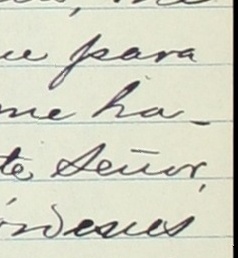 ue para
me ha-
te Señor,
órdenes